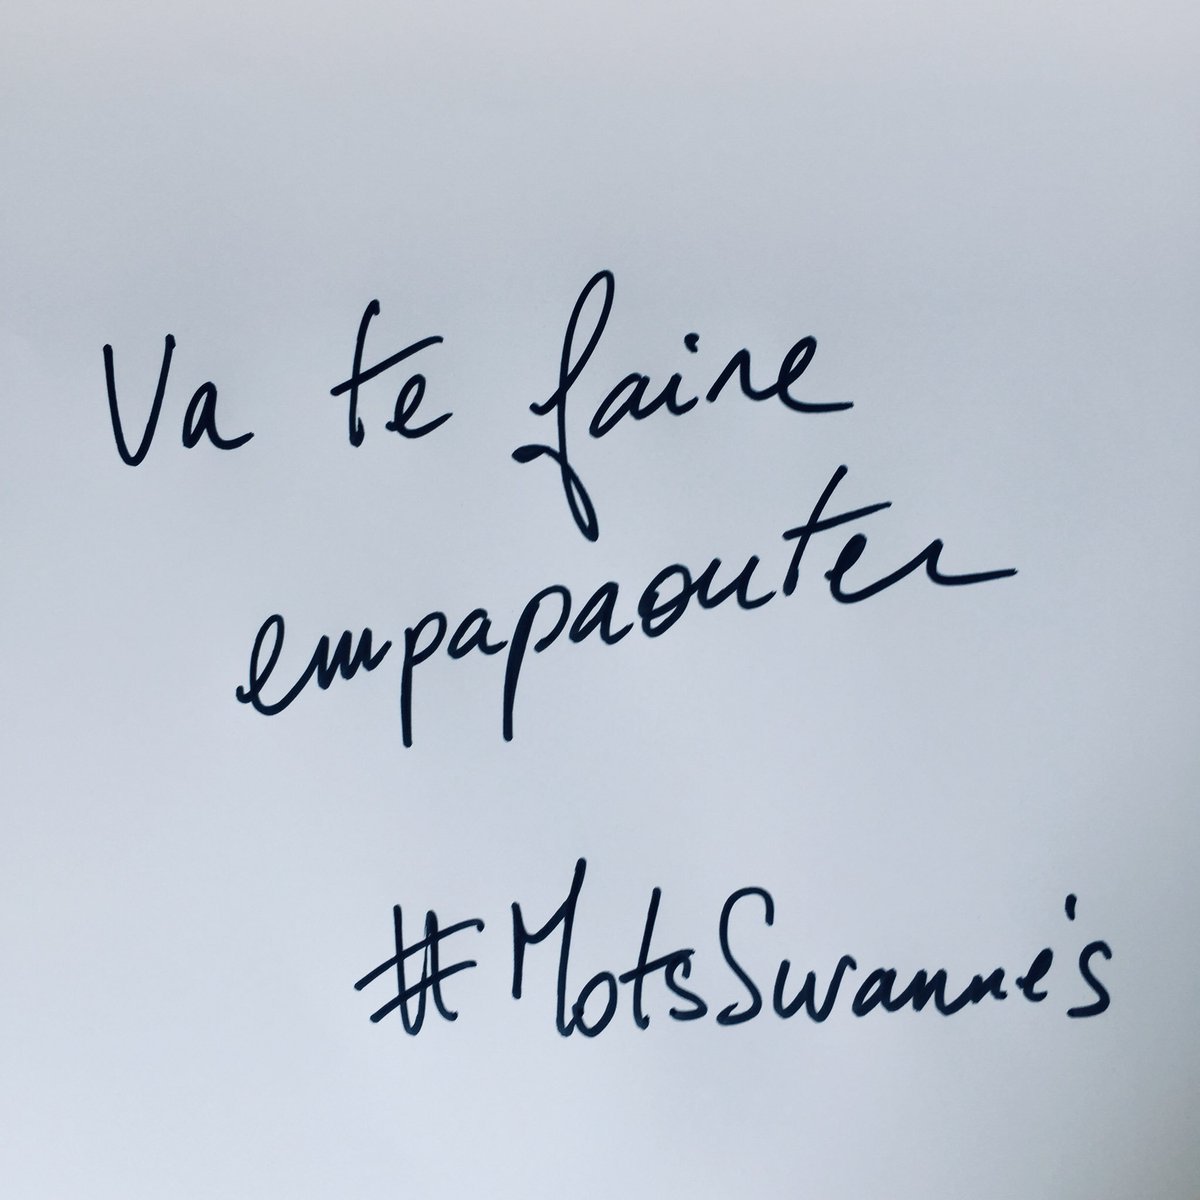 Va te faire
empapaouter
#MotsSwannés